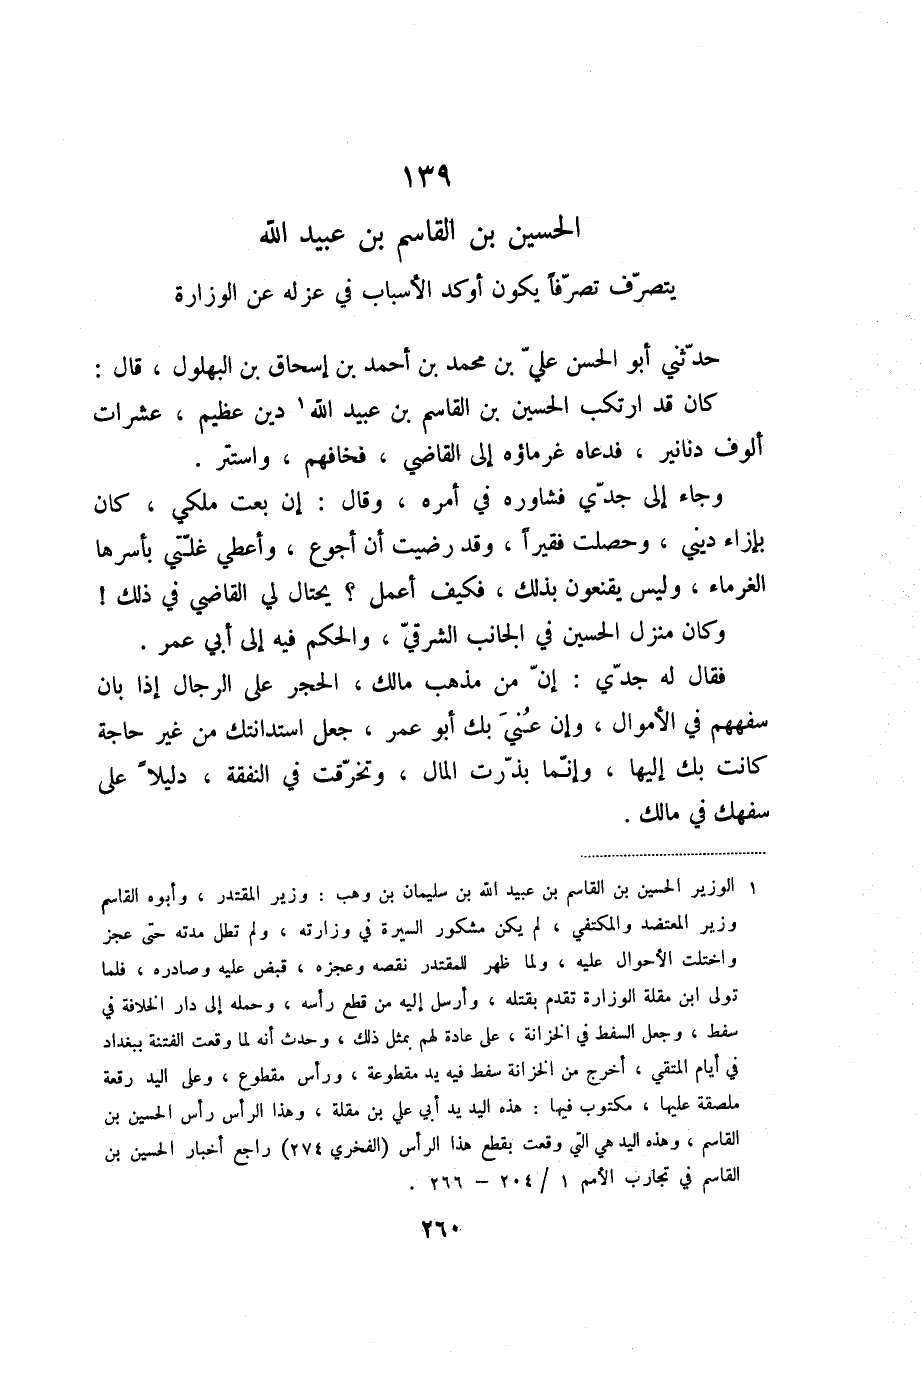 ١٣٩
الحسين بن القاسم بن عبيد الله
يتصرّف تصرّفاً يكون أوكد الأسباب في عزله عن الوزارة
حدّثني أبو الحسن عليّ بن محمد بن أحمد بن إسحاق بن البهلول ، قال :
كان قد ارتكب الحسين بن القاسم بن عبيد الله ١ دين عظيم ، عشرات
ألوف دنانير ، فدعاه غرماؤه إلى القاضي ، فخافهم ، واستتر .
وجاء إلى جدّي فشاوره في أمره ، وقال : إن بعت ملكي ، كان
بإزاء ديني ، وحصلت فقيراً ، وقد رضيت أن أجوع ، وأعطي غلّتي بأسرها
الغرماء ، وليس يقنعون بذلك ، فكيف أعمل ؟ يحتال لي القاضي في ذلك !
وكان منزل الحسين في الجانب الشرقيّ ، والحكم فيه إلى أبي عمر .
فقال له جدّي : إنّ من مذهب مالك ، الحجر على الرجال إذا بان
سفههم في الأموال ، وإن عُنيَ بك أبو عمر ، جعل استدانتك من غير حاجة
كانت بك إليها ، وإنّما بذّرت المال ، وتخرّقت في النفقة ، دليلاً على
سفهك في مالك .
١ الوزير الحسين بن القاسم بن عبيد الله بن سليمان بن وهب : وزير المقتدر ، وأبوه القاسم
وزير المعتضد والمكتفي ، لم يكن مشكور السيرة في وزارته ، ولم تطل مدته حتّى عجز
واختلت الأحوال عليه ، ولما ظهر للمقتدر نقصه وعجزه ، قبض عليه وصادره ، فلما
تولى ابن مقلة الوزارة تقدم بقتله ، وأرسل إليه من قطع رأسه ، وحمله إلى دار الخلافة في
سفط ، وجعل السفط في الخزانة ، على عادة لهم بمثل ذلك ، وحدث أنه لما وقعت الفتنة ببغداد
في أيام المتقي ، أخرج من الخزانة سفط فيه يد مقطوعة ، ورأس مقطوع ، وعلى اليد رقعة
ملصقة عليها ، مكتوب فيها : هذه اليد يد أبي علي بن مقلة ، وهذا الرأس رأس الحسين بن
القاسم ، وهذه اليد هي التي وقعت بقطع هذا الرأس (الفخري ٢٧٤) راجع أخبار الحسين بن
القاسم في تجارب الأمم ١ / ٢٠٤ – ٢٦٦ .
٢٦٠